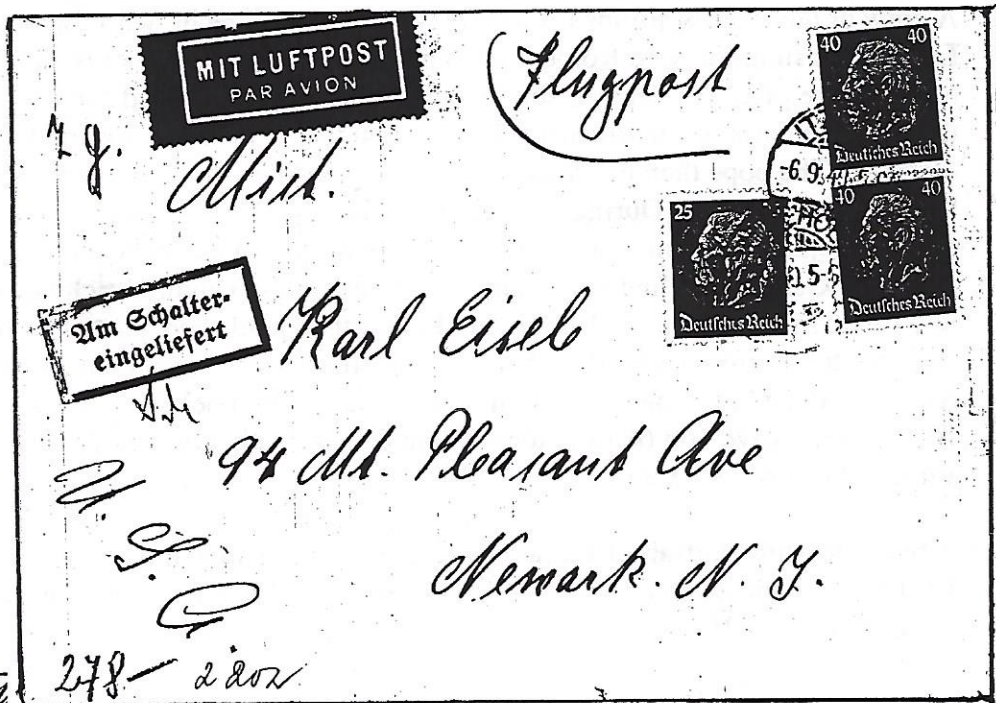 MIT LUFTPOST
PAR AVION
Flugpost
40 40
Deutsches Reich
-6.9.4
40 40
Deutsches Reich
25
Deutsches Reich
Mist.
Am Schalter-
eingeliefert
Karl Eiseb
94 Mt. Pleasant Ave
Newark. N. J.
U. S. A.
278— 2 20z